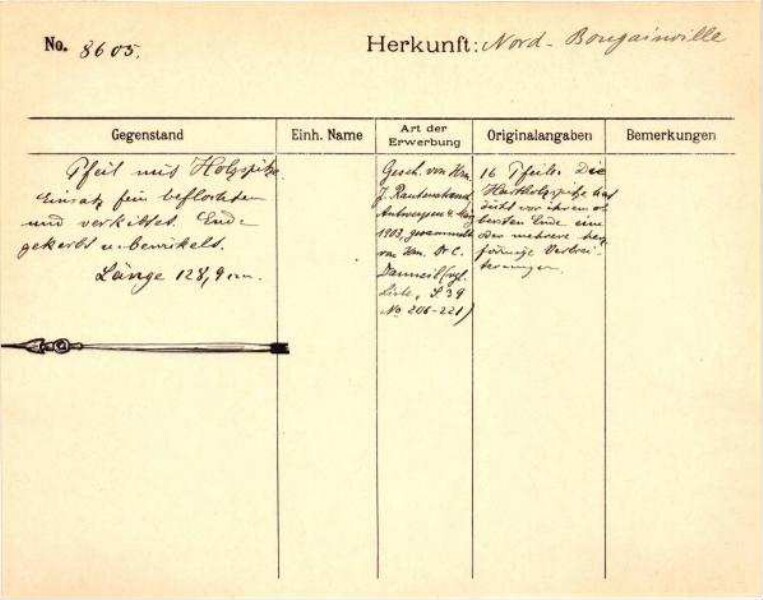 No. 8605.
Herkunft: Nord-Bougainville
Gegenstand
Einh. Name
Art der Erwerbung
Originalangaben
Bemerkungen
Pfeil mit Holzspitze.
Einsatz fein beflochten
und verkittet. Ende
gekerbt u. bewickelt.
Länge 128,9 cm.
Gesch. von Hrn.
J. Rautenstrauch
Antwerpen 4. May
1903, gesammelt
von Hrn. Dr C.
Danneil (vgl.
Liste, S. 39
No 206-221)
16 Pfeile. Die
Hartholzspitze hat
dicht vor ihrem o-
bersten Ende eine
oder mehrere
förmige Verbrei-
terungen.